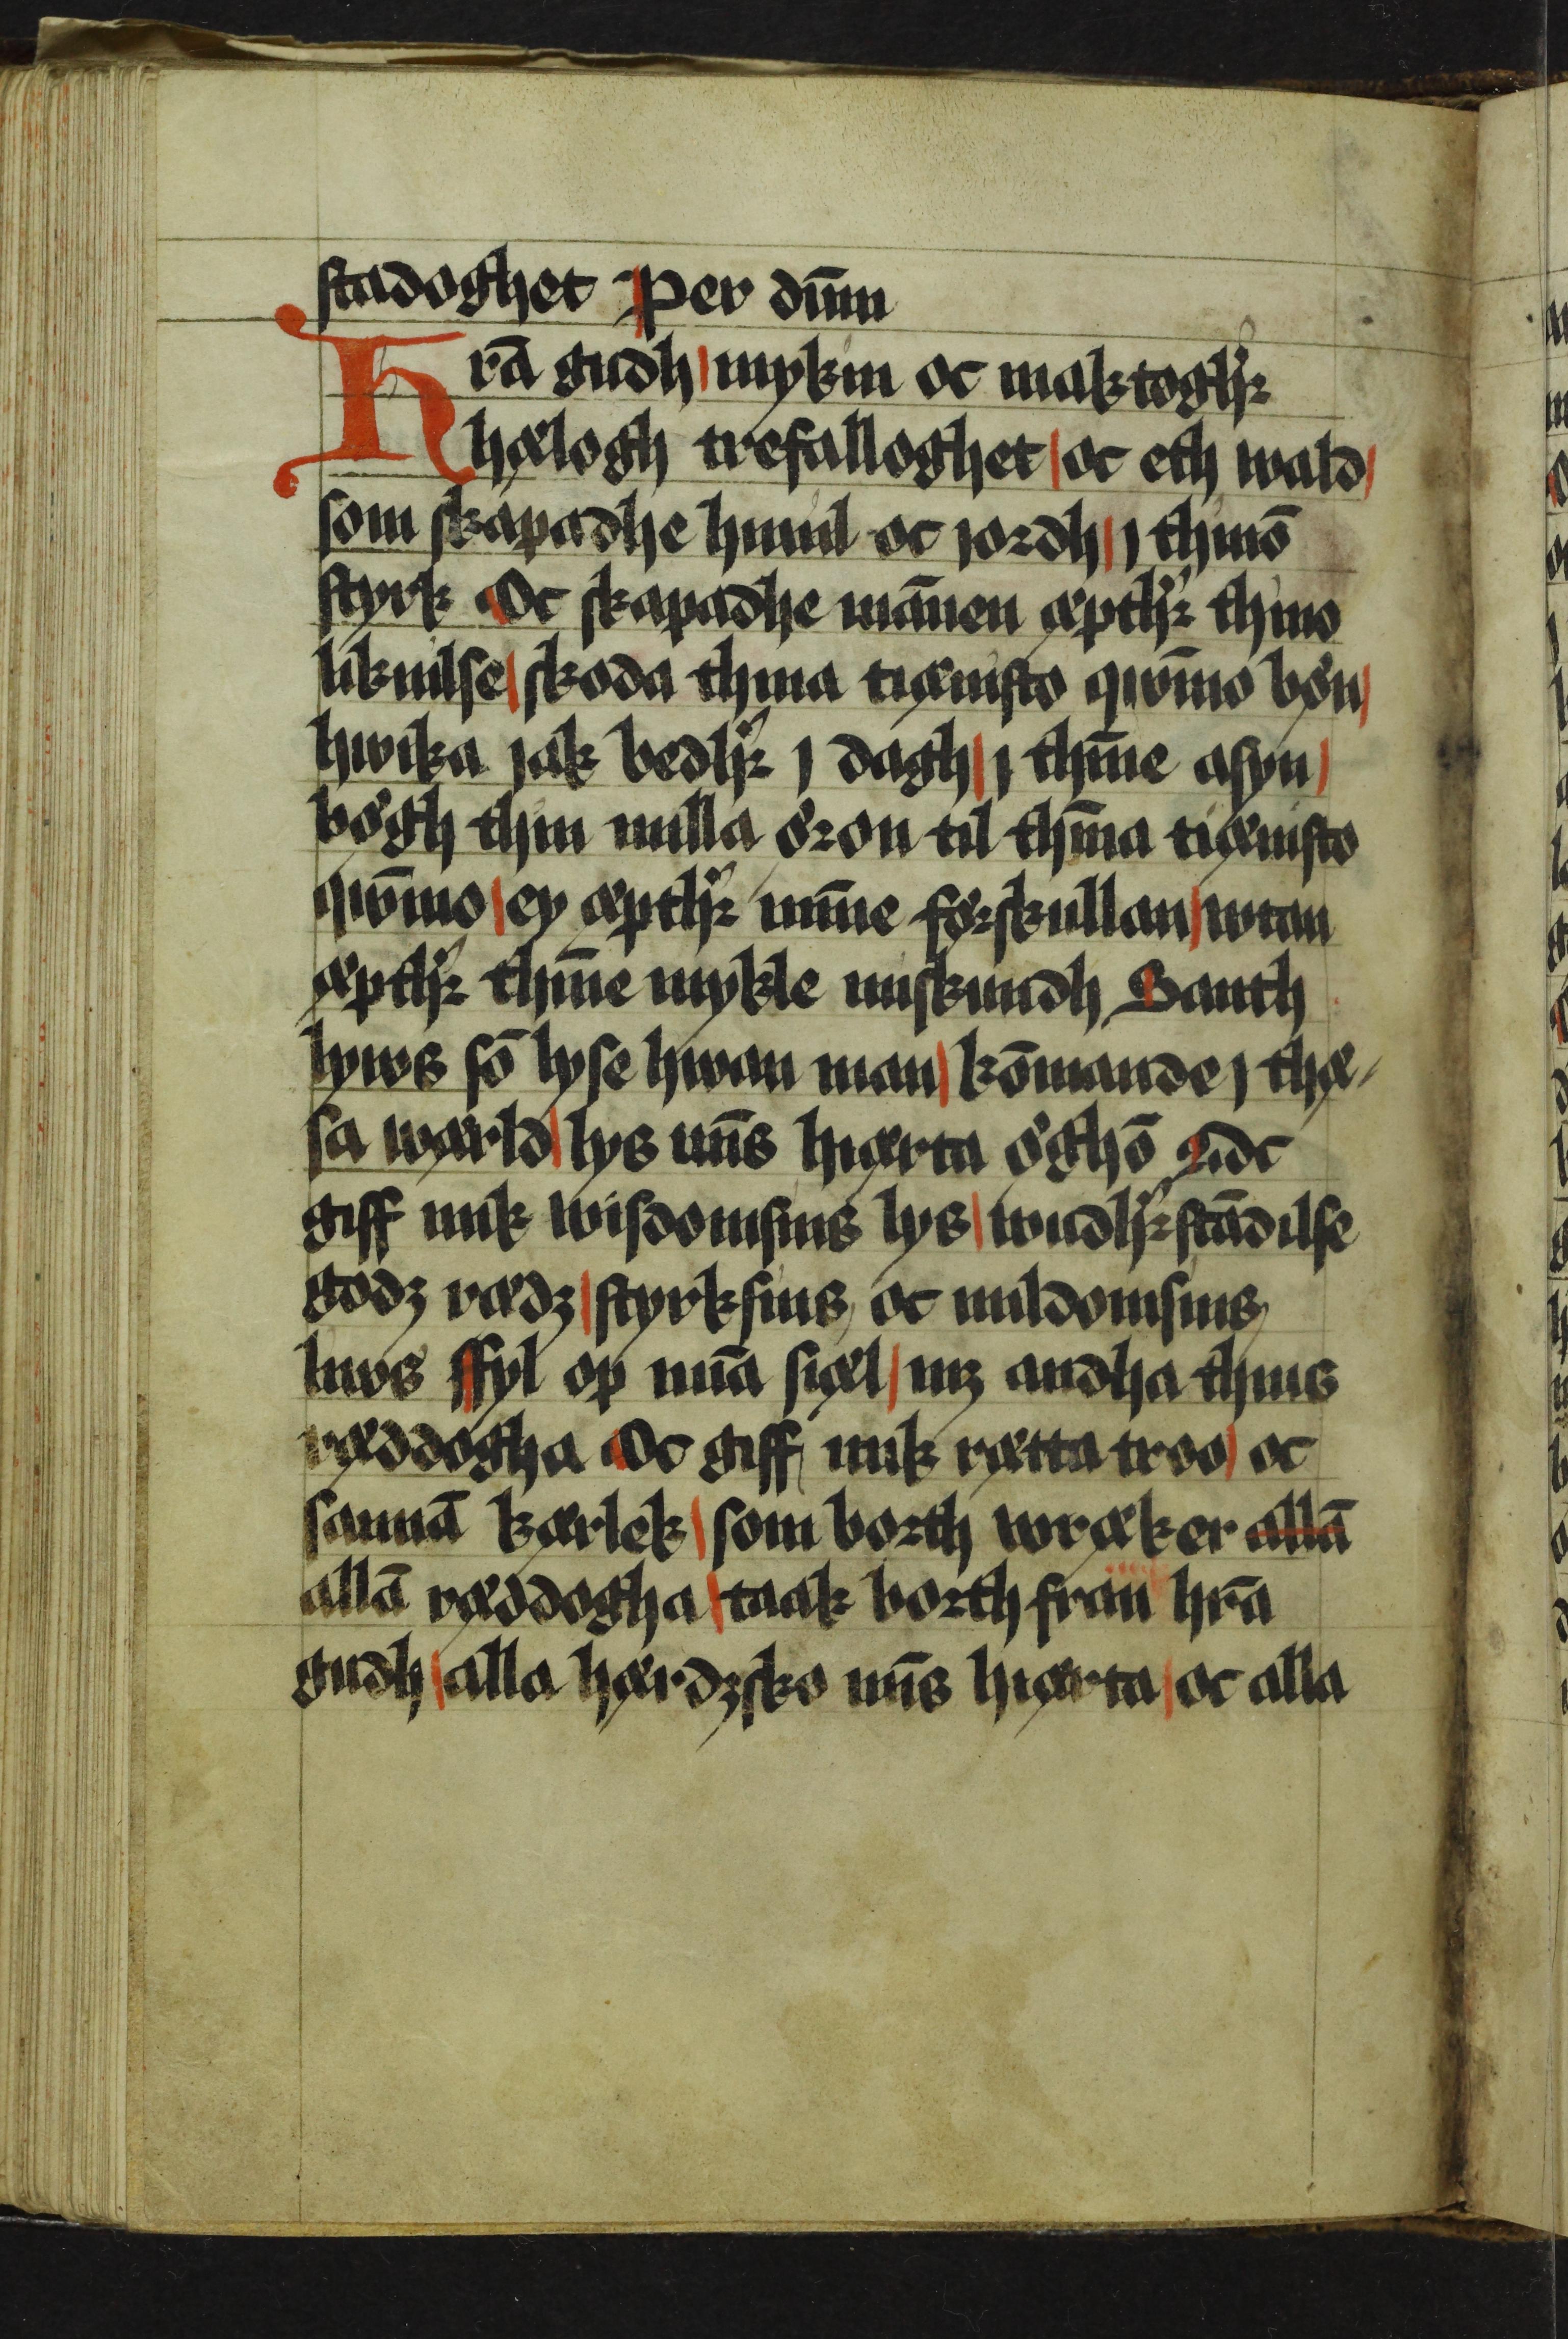 stadoghet Per dn̄m
Hrā gudh mykin oc maktoghir
hælogh trefalloghet oc eth wald
som skapadhe himil oc jordh j thinō
styrk Oc skapadhe mānen æpthir thino
liknilse skoda thina tiænisto qwīno bøn
hwika jak bedhir j dagh j thīne asyn
bøgh thin milla øron til thīna tiænisto
qwīno ey æpthir mīne førskullan wtan
æpthir thīne mykle miskundh Santh
lyws sō lyse hwan man kōmande j thæ-
sa wærld lys mīs hiærta øghō Oc
giff mik wisdomsins lys wndhirstādilse
godz rædz styrksins oc mildomsins
liws ffyl op mīa siæl mz andha thins
ræddogha Oc giff mik rætta troo oc
sannā kærlek som borth wræker allā
allā ræddogha taak borth fran hrā
gudh alla hærdzsko mīs hiærta oc alla